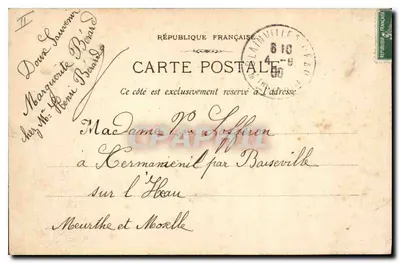 II
Doux Souvenir
Marguerite Bérard
chez Mr Henri Bérard
RÉPUBLIQUE FRANÇAISE
CARTE POSTALE
Ce côté est exclusivement réservé à l'adresse
6 10
4 - 9
00
Madame Ve
à Hermaménil par Baiseville
sur l'Eau
Meurthe et Moselle